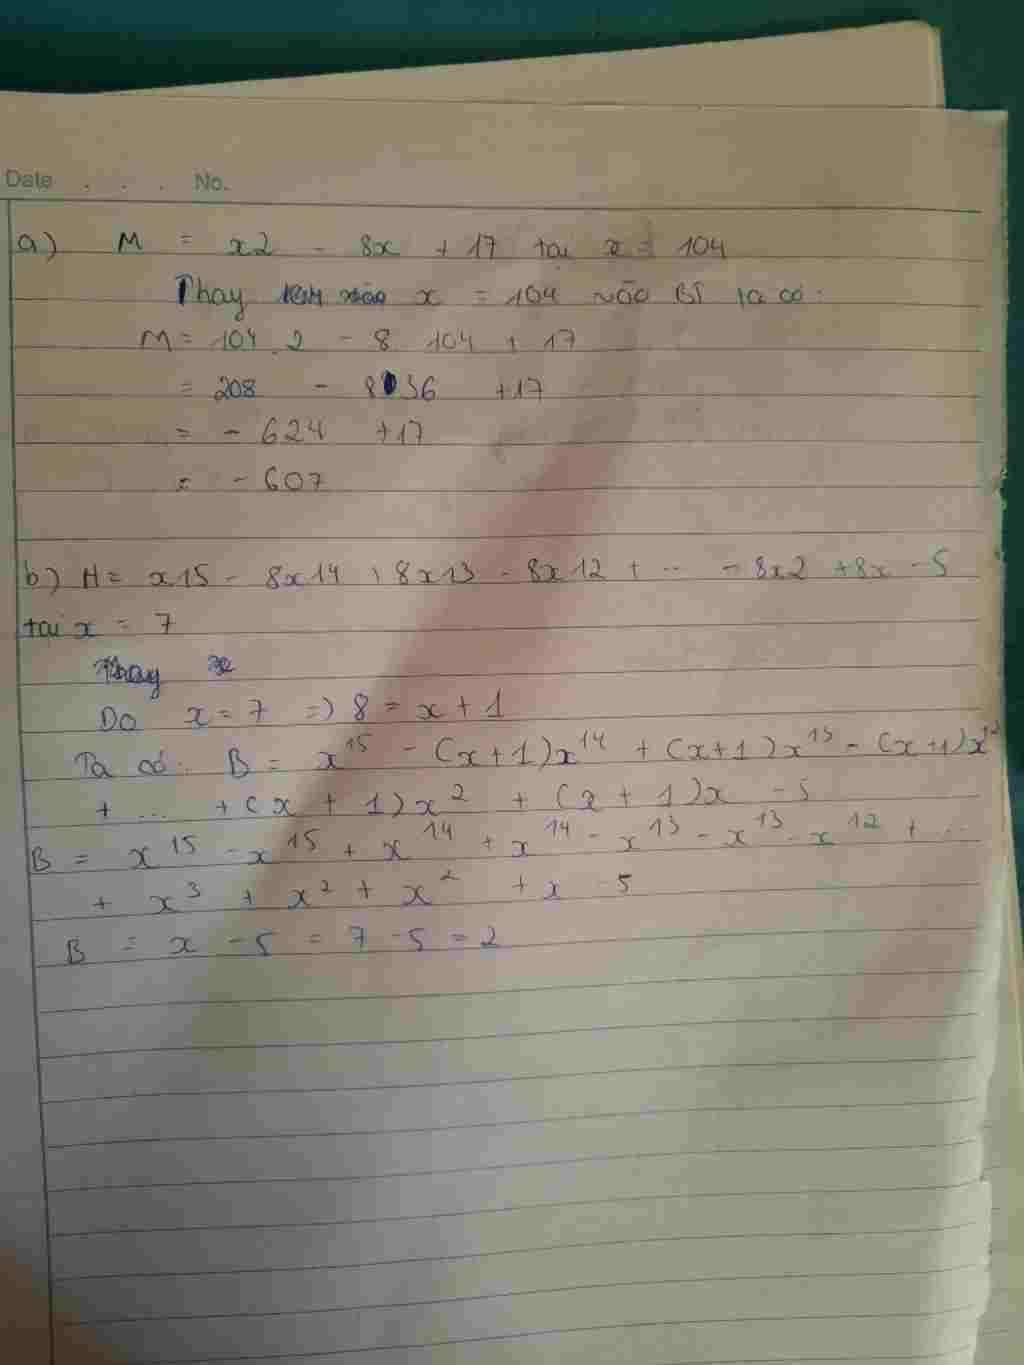 Date . . . No.
a) M = x2 - 8x + 17 tại x = 104
Thay x = 104 vào BT ta có:
M = 104.2 - 8 104 + 17
= 208 - 836 +17
= - 624 +17
= - 607
b) H = x15 - 8x14 + 8x13 - 8x12 + ... - 8x2 +8x - 5
tại x = 7
Thay x
Do x = 7 => 8 = x + 1
Ta có: B = x¹⁵ - (x+1)x¹⁴ + (x+1)x¹³ - (x+1)x¹²
+ ... + (x + 1)x² + (x + 1)x - 5
B = x¹⁵ - x¹⁵ + x¹⁴ + x¹⁴ - x¹³ - x¹³ - x¹² + ...
+ x³ + x² + x² + x - 5
B = x - 5 = 7 - 5 = 2